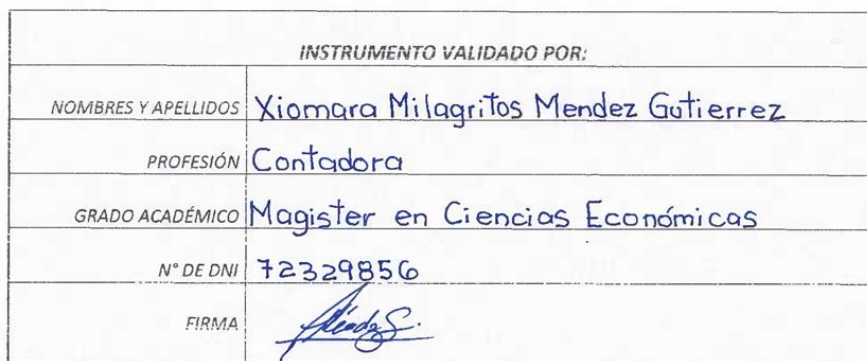 INSTRUMENTO VALIDADO POR:
NOMBRES Y APELLIDOS Xiomara Milagritos Mendez Gutierrez
PROFESIÓN Contadora
GRADO ACADÉMICO Magister en Ciencias Económicas
N° DE DNI 72329856
FIRMA